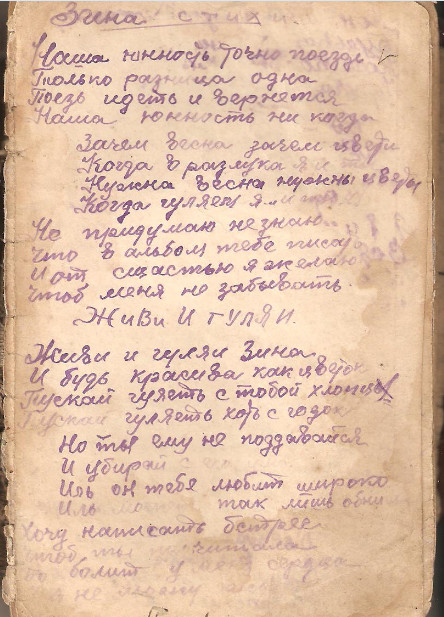 Зина стих
Наша юность точно поездь
Только разница одна
Поезь идеть и вернется
Наша юность ни когда
Зачем весна зачем цветы
Когда в разлука я и
Нужна весна нужны цветы
Когда гуляеш я и
Не придумаю незнаю
Что в альбом тебе писать
И от счастью я желаю
Чтоб меня не забывать.
Живи И ГУЛЯЙ.
Живи и гуляй Зина
И будь красива как цветок
Пускай гулять с тобой хлопцы
Пускай гуляеть хоть с годок
Но ты ему не поддавайся
И убирай
Иль он тебе любит широко
Иль так лишь обни
Хочу написать бстрее
чтоб ты читала
болит у сердца
не могу